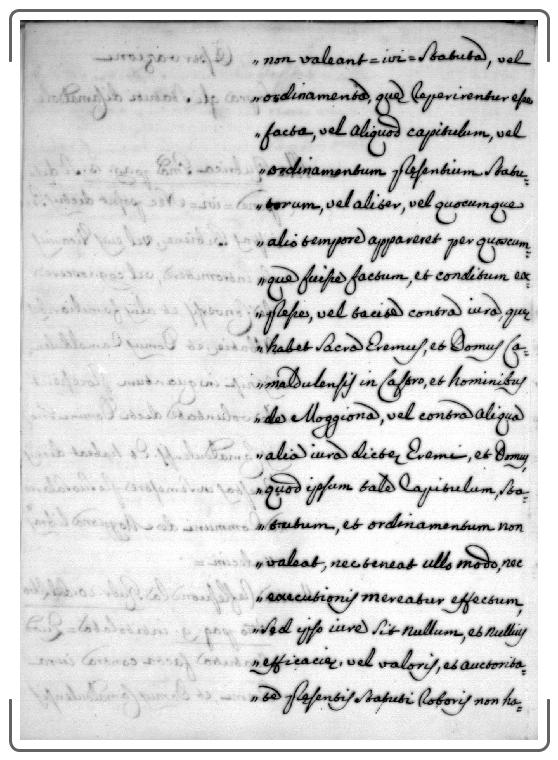 „ non valeant = ivi = Statuta, vel
„ ordinamenta, que reperirentur esse
„ facta, vel aliquod capitulum, vel
„ ordinamentum presentium Statu-
„ torum, vel aliter, vel quocumque
„ alio tempore appareret per quoscum-
„ que fuisse factum, et conditum ex-
„ presse, vel tacite contra iura, que
„ habet Sacra Eremus, et Domus Ca-
„ maldulensis in Castro, et hominibus
„ de Moggiona, vel contra aliqua
„ alia iura dicte Eremi, et Domus,
„ quod ipsum tale Capitulum, Sta-
„ tutum, et ordinamentum non
„ valeat, nec teneat ullo modo, nec
„ executionis mereatur effectum,
„ Sed ipso iure sit nullum, et nullius
„ efficacie, vel valoris, et auctorita-
„ te presentis Statuti roboris non ha-